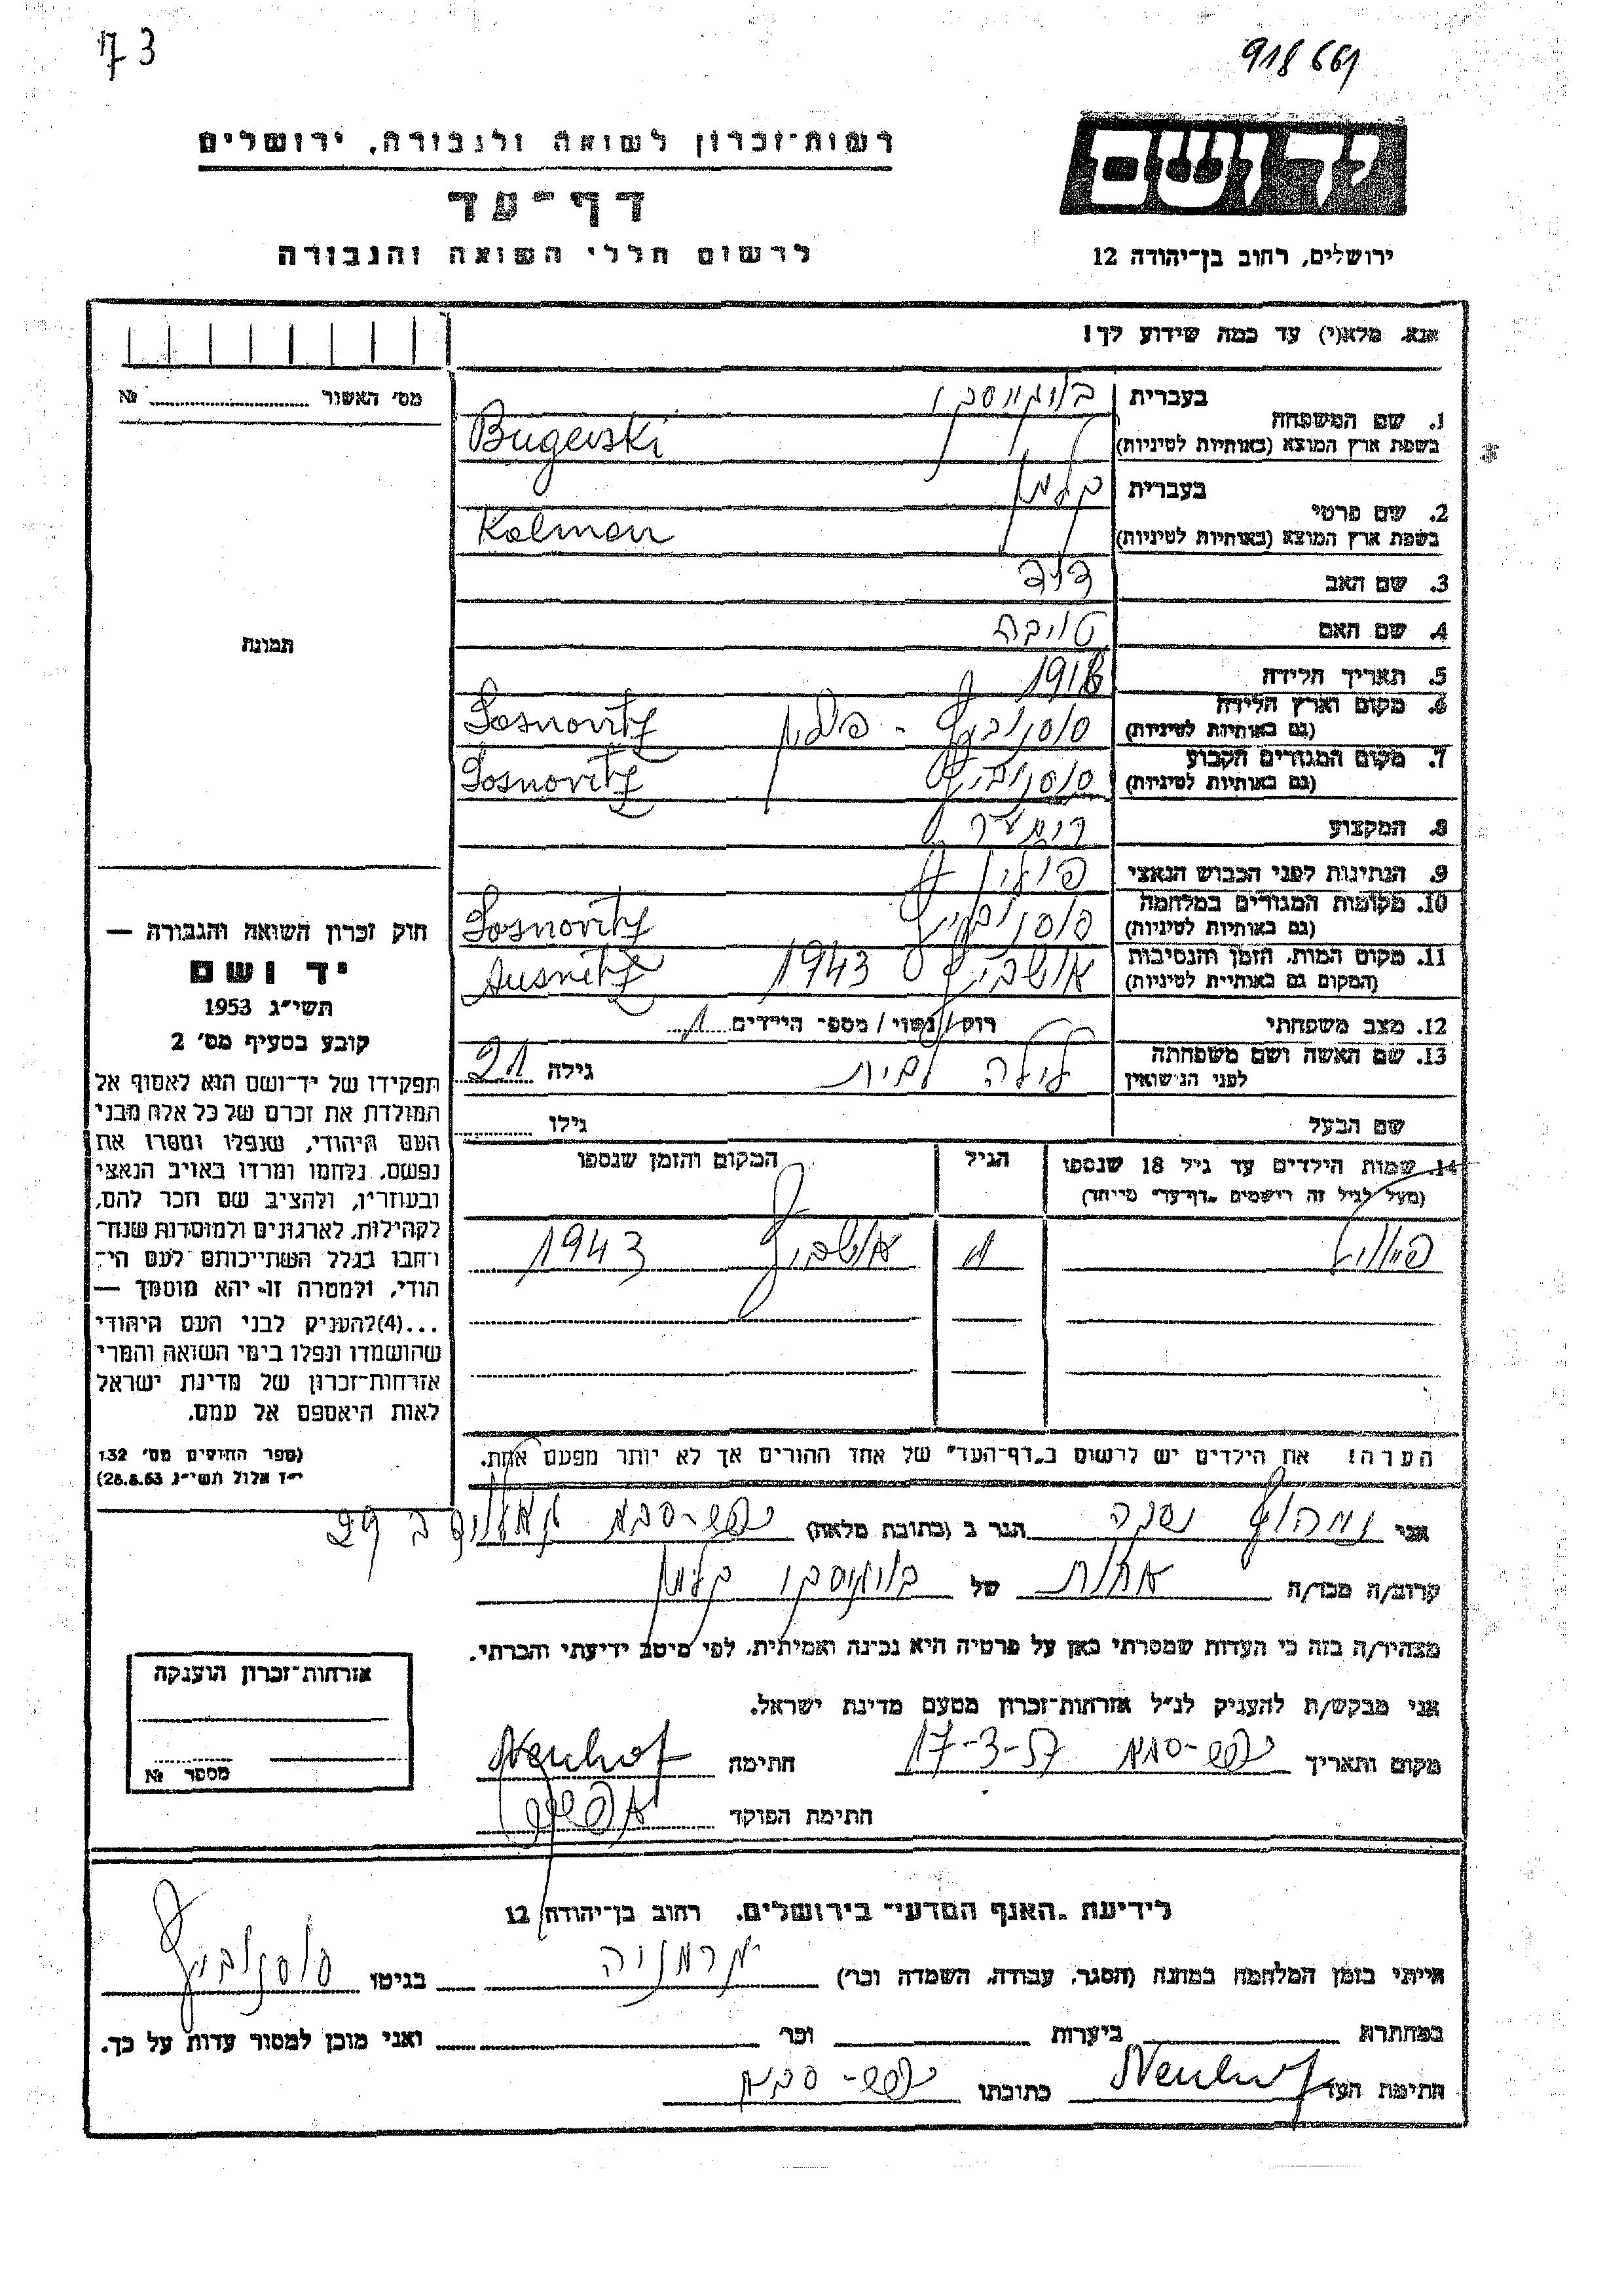 73
918661
יד ושם
רשות-זכרון לשואה ולגבורה, ירושלים
דף-עד
לרשום חללי השואה והגבורה
ירושלים, רחוב בן-יהודה 12
אנא, מלא(י) עד כמה שידוע לך!
מס' האשור № 
1. שם המשפחה
בעברית
בשפת ארץ המוצא (באותיות לטיניות) Bugevski
2. שם פרטי
בעברית קלמן
בשפת ארץ המוצא (באותיות לטיניות) Kalman
3. שם האב דוד
4. שם האם טויבה
5. תאריך הלידה 1918
6. מקום וארץ הלידה (גם באותיות לטיניות) סוסנוביץ - פולין Sosnovitz
7. מקום המגורים הקבוע (גם באותיות לטיניות) סוסנוביץ Sosnovitz
8. המקצוע
9. הנתינות לפני הכבוש הנאצי פולין
10. מקומות המגורים במלחמה (גם באותיות לטיניות) סוסנוביץ Sosnovitz
11. מקום המות, הזמן והנסיבות (המקום גם באותיות לטיניות) אושביץ 1943 Ausvitz
12. מצב משפחתי רווק / נשוי / מספר הילדים 1
13. שם האשה ושם משפחתה לפני הנישואין גילה 21
שם הבעל גילו
תמונה
חוק זכרון השואה והגבורה —
יד ושם
תשי"ג 1953
קובע בסעיף מס' 2
תפקידו של יד-ושם הוא לאסוף אל
המולדת את זכרם של כל אלה מבני
העם היהודי, שנפלו ומסרו את
נפשם, נלחמו ומרדו באויב הנאצי
ובעוזריו, ולהציב שם וזכר להם,
לקהילות, לארגונים ולמוסדות שנח-
רבו בגלל השתייכותם לעם הי-
הודי, ולמטרה זו יהא מוסמך —
...(4)להעניק לבני העם היהודי
שהושמדו ונפלו בימי השואה והמרי
אזרחות-זכרון של מדינת ישראל
לאות היאספם אל עמם.
(ספר החוקים מס' 132
י"ז אלול תשי"ג 28.8.53)
14. שמות הילדים עד גיל 18 שנספו
(מעל לגיל זה רישמים "דף-עד" מייוחד)
הגיל
המקום והזמן שנספו
1 אושביץ 1943
הערה! את הילדים יש לרשום ב"דף-העד" של אחד ההורים אך לא יותר מפעם אחת.
אני הגר ב (כתובת מלאה) כפר-סבא
קרוב/ה מכר/ה אחות של קלמן
מצהיר/ה בזה כי העדות שמסרתי כאן על פרטיה היא נכונה ואמיתית, לפי מיטב ידיעתי והכרתי.
אני מבקש/ת להעניק לנ"ל אזרחות-זכרון מטעם מדינת ישראל.
מקום ותאריך כפר-סבא 17-3-57 חתימה Neuhof
חתימת הפוקד
אזרחות-זכרון הוענקה
מספר №
לידיעת "האגף המדעי" בירושלים, רחוב בן-יהודה 12
הייתי בזמן המלחמה במחנה (הסגר, עבודה, השמדה וכר') גרמניה בגיטו סוסנוביץ
במחתרת ביערות וכר' ואני מוכן למסור עדות על כך.
חתימת העד Neuhof כתובתו כפר-סבא